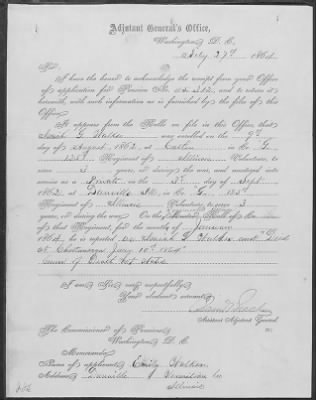 Adjutant General's Office,
Washington, D. C.
July 27th 1864
Sir:
I have the honor to acknowledge the receipt from your Office
of application for Pension No. and to return it
herewith, with such information as is furnished by the files of this
Office.
It appears from the Rolls on file in this Office, that
was enrolled on the 9th
day of August, 1862, at in Co. G.
125th Regiment of Illinois Volunteers, to
serve 3 years, or during the war, and mustered into
service as a Private on the 3d day of Sept
1862, at Danville Ills, in Co. G. 125th
Regiment of Illinois Volunteers, to serve 3
years, or during the war. On the Muster Roll of Co.
of that Regiment, for the months of January
1864, he is reported "Died
at Chattanooga Jany 10th 1864"
Cause of Death not stated
I am, Sir, very respectfully,
Your obedient servant,
Assistant Adjutant General
The Commissioner of Pensions,
Washington, D. C.
Memoranda:
Name of applicant, Emily Walker
Address, Danville Vermilion Co
Illinois